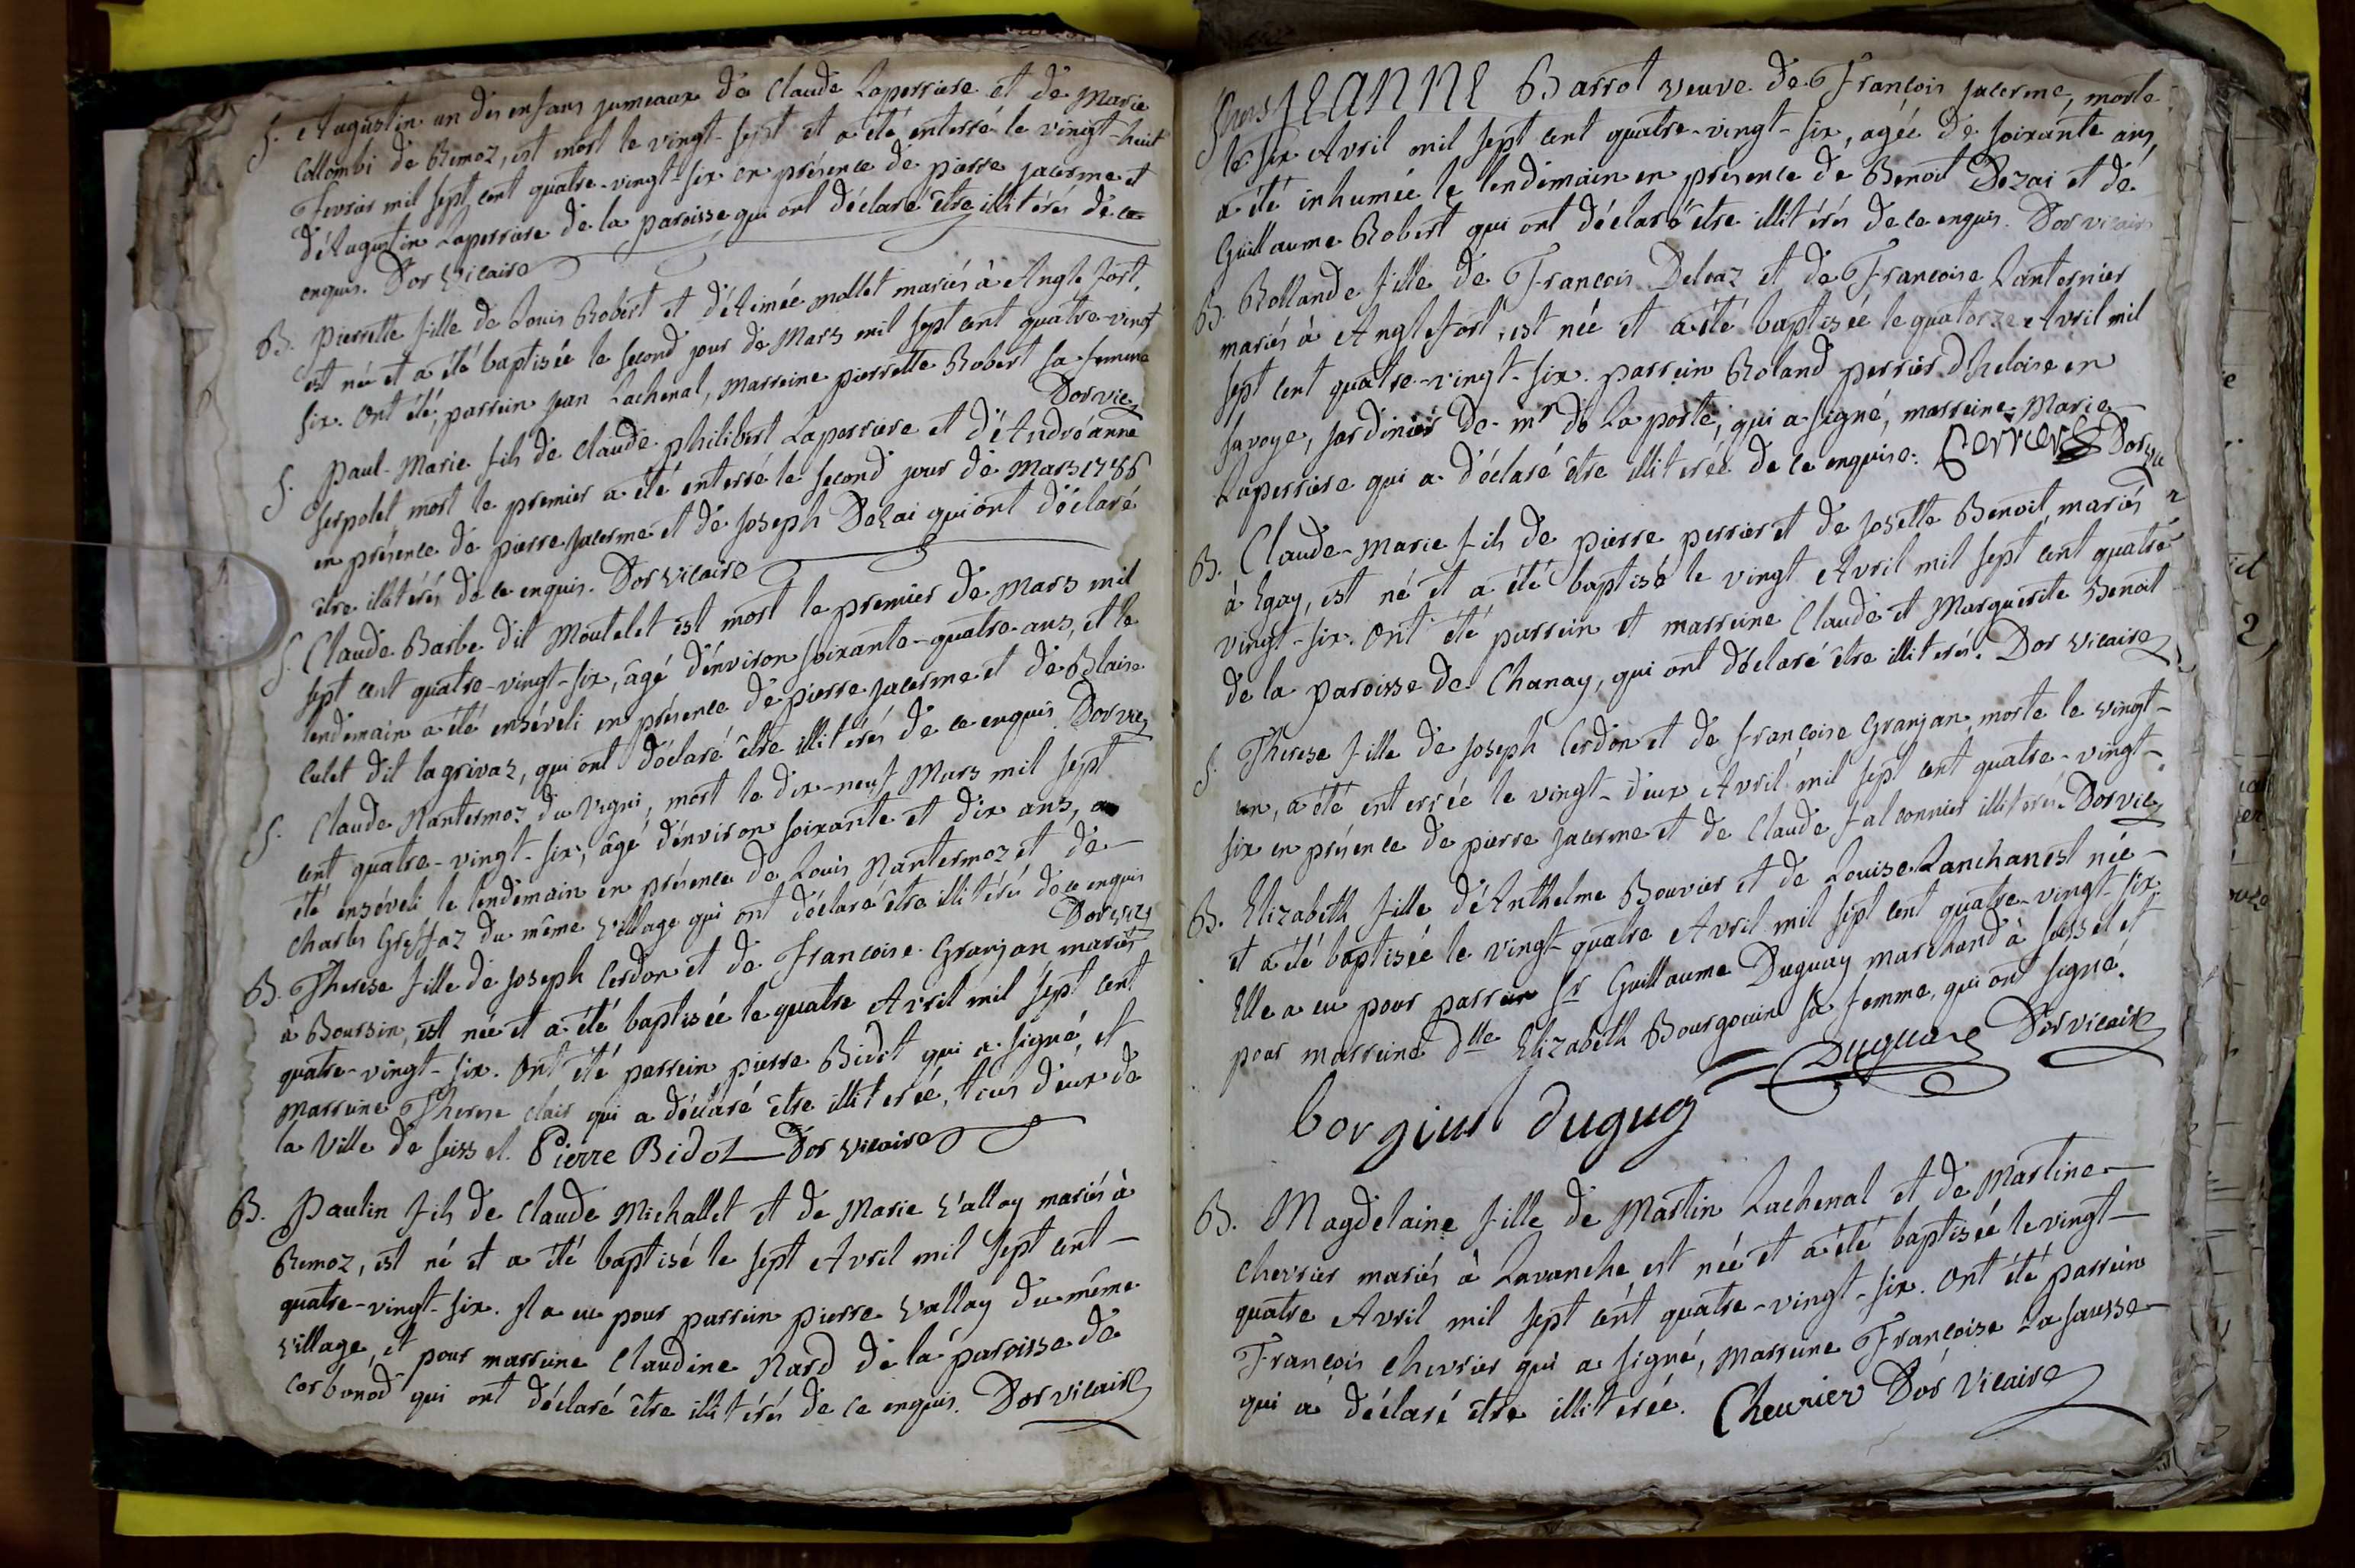 S. Augustin un des enfans jumeaux de Claude Laperriere et de Marie
Collombi de Remoz, est mort le vingt-sept et a été enterré le vingt-huit
Fevrier mil sept cent quatre-vingt-six en présence de pierre jacerme et
d'Augustin Laperriere de la paroisse qui ont déclaré être illitérés de ce
enquis. Dor Vicaire
B. Pierrette fille de Louis Robert et d'Aimée mollet mariés à Anglefort,
est née et a été baptisée le second jour de Mars mil sept cent quatre-vingt
six. Ont été, parrein jean Lachenal, Marreine pierrette Robert sa femme
Dor vic
S. Paul-Marie fils de Claude philibert Laperriere et d'Andréanne
Serpolet mort le premier a été enterré le second jour de Mars 1786
en présence de pierre jacerme et de joseph Dezai qui ont déclaré
être illitérés de ce enquis. Dor Vicaire
S. Claude Barbe dit Moutelet est mort le premier de Mars mil
sept cent quatre-vingt-six, âgé d'environ soixante-quatre ans, et le
lendemain a été enséveli en présence de pierre jacerme et de Blaise
Culet dit lagrivaz, qui ont déclaré être illitérés de ce enquis Dor vic
S. Claude Nantermoz du Vigni, mort le dix-neuf Mars mil sept
cent quatre-vingt-six, âgé d'environ soixante et dix ans, a
été enséveli le lendemain en présence de Louis Nantermoz et de
Charles Greffaz du même Village qui ont déclaré être illitérés de ce enquis
Dor vic
B. Therese fille de joseph Cerdon et de Francoise Granjan mariés
à Boursin, est née et a été baptisée le quatre Avril mil sept cent
quatre-vingt-six. Ont été parrein pierre Bidot qui a signé, et
Marreine Therese clair qui a déclaré être illiterée, tous deux de
la Ville de seissel. Pierre Bidot Dor Vicaire
B. Paulin fils de Claude Michallet et de Marie Vallay mariés à
Remoz, est né et a été baptisé le sept Avril mil sept cent
quatre-vingt-six. Il a eu pour parrein pierre Vallay du même
Village, et pour marreine Claudine Nard de la paroisse de
Corbonod qui ont déclaré être illitérés de ce enquis. Dor Vicaire
JEANNE Barrot veuve de François jacerme, morte
le six Avril mil sept cent quatre-vingt-six, agée de soixante ans,
a été inhumée le lendemain en présence de Benoit Dezai et de
Guillaume Robert qui ont déclaré être illitérés de ce enquis. Dor vicaire
B. Rollande fille de François Deloaz et de Francoise Lanternier
mariés à Anglefort, est née et a été baptisée le quatorze Avril mil
sept cent quatre-vingt-six. parrein Roland perrier d'heloise en
savoye, jardinier de mr de La porte, qui a signé, marreine Marie
Laperriere qui a déclaré être illiterée de ce enquise. Perrier Dor vic
B. Claude-Marie fils de pierre perrier et de josette Benoit mariés
à Egay, est né et a été baptisé le vingt Avril mil sept cent quatre
vingt-six. Ont été parrein et marreine Claude et Marguerite Benoit
de la paroisse de Chanay, qui ont déclaré être illiterés. Dor Vicaire
S. Therese fille de joseph Cerdon et de françoise Granjan, morte le vingt-
un, a été enterrée le vingt-deux Avril mil sept cent quatre-vingt-
six en présence de pierre jacerme et de Claude falconnier illiterés. Dor vic
B. Elizabeth fille d'Anthelme Bouvier et de Louise Lanchan est née
et a été baptisée le vingt-quatre Avril mil sept cent quatre-vingt-six.
Elle a eu pour parrein Sr Guillaume Duguay marchand à seissel et
pour marreine dlle Elizabeth Bourgouin sa femme, qui ont signé.
Duguay Dor vicaire
borgiun duguay
B. Magdelaine fille de Martin Lachenal et de Martine
Chevrier mariés à Lavanche est née et a été baptisée le vingt-
quatre Avril mil sept cent quatre-vingt-six. Ont été parrein
François chevrier qui a signé, marreine Françoise La sausse
qui a déclaré être illiterée. Cheurier Dor Vicaire